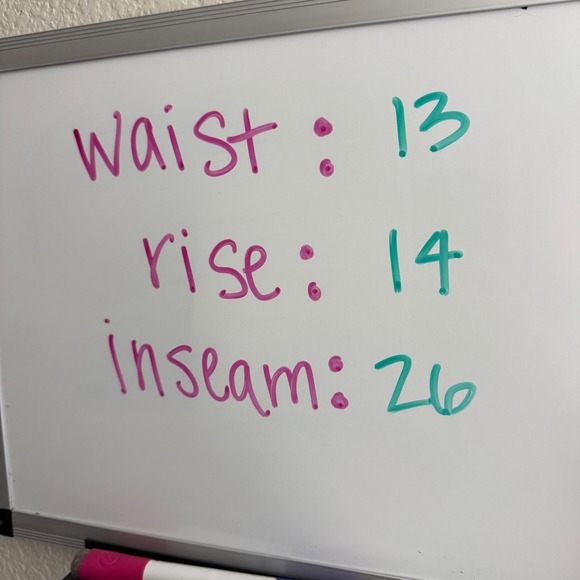 waist: 13
rise: 14
inseam: 26